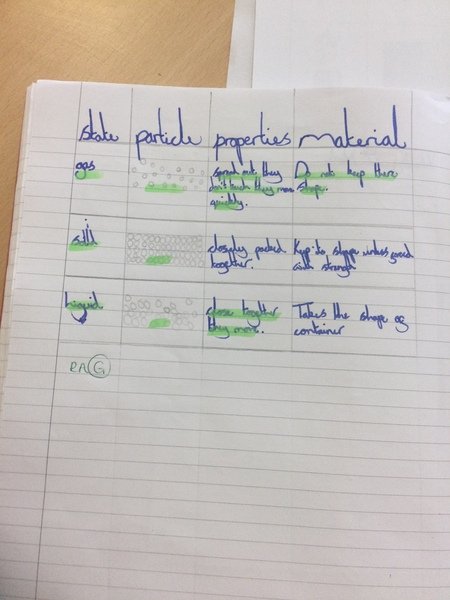 state particle properties material
gas
spread out, they
don't touch they move
quickly.
Do not keep there
shape.
solid
closely packed
together.
Keep its shape unless forced
with strength
liquid
close together
they move.
Takes the shape of
container
RAG